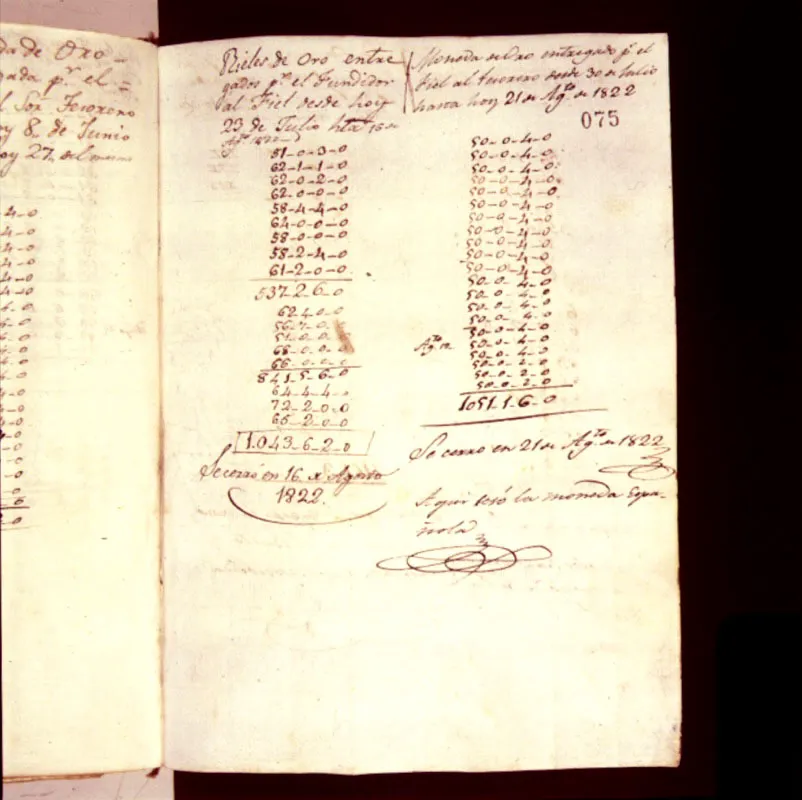 da de Oro
gada pr. el
l Sor. Tesorero
oy 8 de Junio
oy 27 del mismo
Rieles de Oro entre
gados pr. el Fundidor
al Fiel desde hoy
23 de Julio hta 16 de
51-0-3-0
62-1-1-0
62-0-2-0
62-0-0-0
58-4-4-0
64-0-0-0
58-0-0-0
58-2-4-0
61-2-0-0
537-2-6-0
62-4-0-0
66-0-0-0
841-5-6-0
64-4-4-0
72-2-0-0
65-2-0-0
1.043-6-2-0
Se cerró en 16 de Agosto
1822.
Moneda de Oro entregada pr. el
Fiel al tesorero desde 30 de Julio
hasta hoy 21 de Agto. de 1822
075
50-0-4-0
50-0-4-0
50-0-4-0
50-0-4-0
50-0-4-0
50-0-4-0
50-0-4-0
50-0-4-0
50-0-4-0
50-0-4-0
50-0-4-0
50-0-4-0
50-0-4-0
50-0-4-0
50-0-4-0
50-0-4-0
50-0-4-0
50-0-4-0
50-0-4-0
50-0-2-0
50-0-2-0
1051-1-6-0
Se cerro en 21 de Agto. de 1822
Aqui cesó la moneda Espa-
ñola